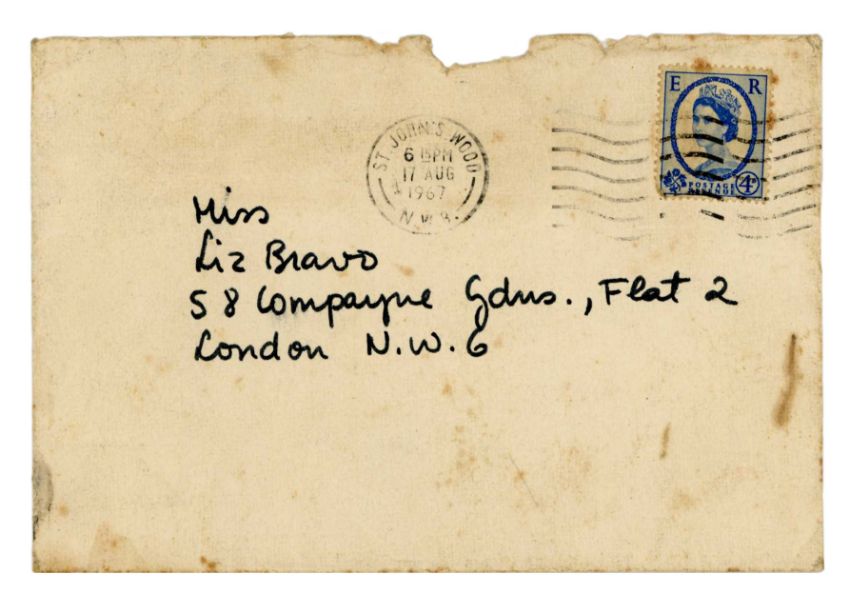 E R
ST. JOHN'S WOOD
6 15PM
17 AUG
1967
N.W.8.
POSTAGE
4D
Miss
Liz Bravo
58 Compayne Gdns., Flat 2
London N.W.6